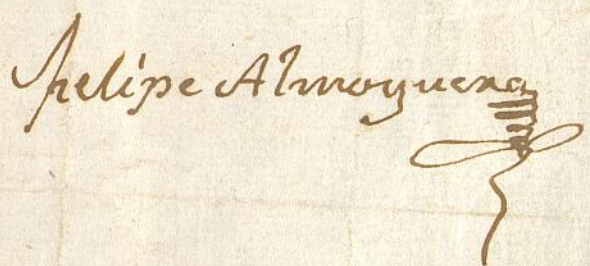 Felipe Almoguera